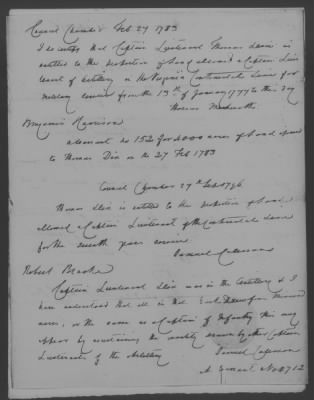 Council Chamber Feb 27 1783
I do certify that Captain Lieutenant Thomas Dix is
entitled to the proportion of Land allowed a Captain Lieu
tenant of Artillery in the Virginia Continental Line for
Military service from the 13th of January 1777 to this day
Thomas Meriwether
Benjamin Harrison
a Warrant no 152 for 4000 acres of Land issued
to Thomas Dix on the 27 Feb 1783
Council Chamber 27th
Thomas Dix is entitled to the proportion of Land
allowed a Captain Lieutenant of the Continental Line
for the seventh year service
Samuel Coleman
Robert Brooke
Captain Lieutenant Dix was in the Artillery & I
have understood that all in that
acres, or the same as a Captain of Infantry this may
appear by examining the
Lieutenants of the Artillery
Samuel Coleman
A